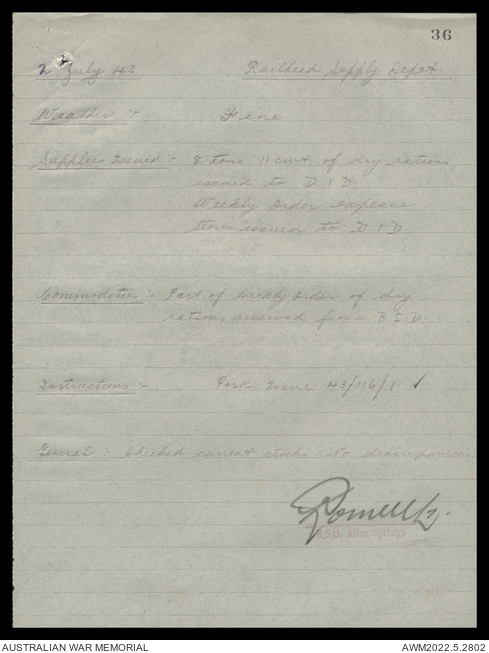 36
2 July 43 Railhead Supply Depot
Weather :- Fine
Supplies Issued :- 8 tons 11 cwt of dry rations
issued to D.I.D.
Weekly order expense
stores issued to D.I.D.
Commodities :- Part of weekly order of dry
rations received from B.S.D.
Instructions :- Pork Issue 43/116/1 ✓
General :- Checked current stocks No discrepancies
R.S.O. Alice Springs
AUSTRALIAN WAR MEMORIAL AWM2022.5.2802